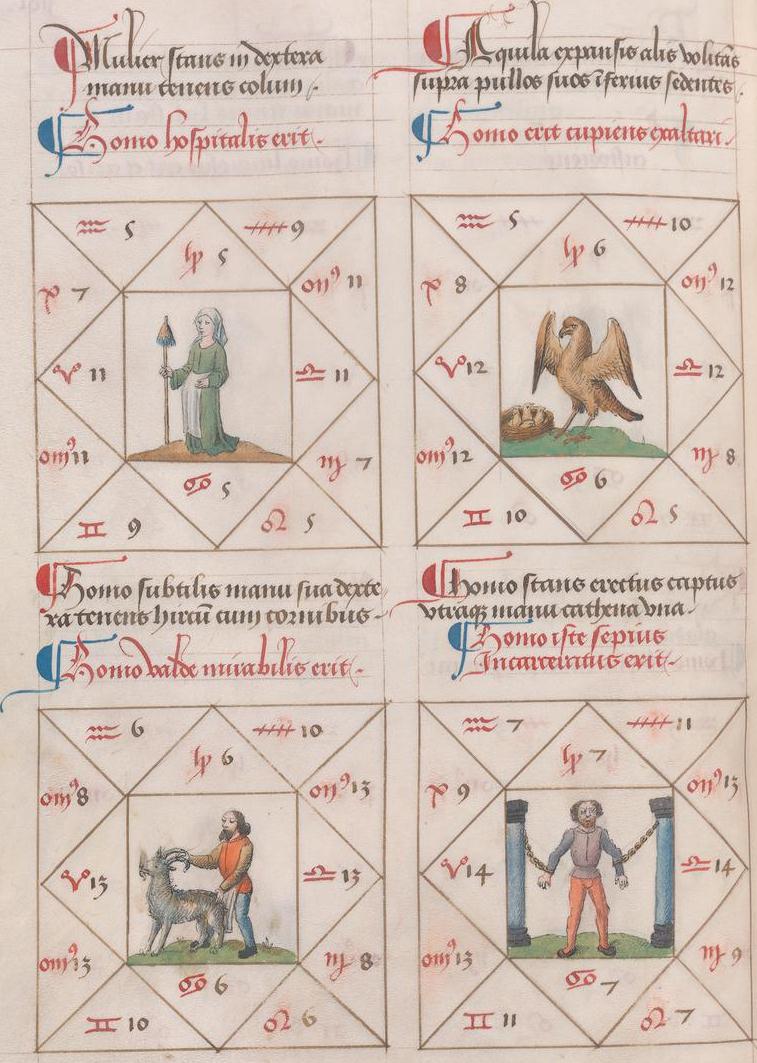 Mulier stans in dextera
manu tenens colum
Homo hospitalis erit
♒ 5
9
5
♓ 7
11
♈ 11
♎ 11
11
♏ 7
♋ 5
♊ 9
♌ 5
Aquila expansis alis volitās
supra pullos suos īferius sedentes
Homo erit cupiens exaltari
♒ 5
10
6
8
12
♈ 12
♎ 12
12
♏ 8
♋ 6
♊ 10
♌ 5
Homo subtilis manu sua dexte-
ra tenens hircū cum cornibus
Homo valde mirabilis erit
♒ 6
10
6
8
13
♈ 13
♎ 13
13
♏ 8
♋ 6
♊ 10
♌ 6
Homo stans erectus captus
utraqꝫ manu cathena una
Homo iste sepius
Incarceratus erit
♒ 7
11
7
9
13
♈ 14
♎ 14
13
♏ 9
♋ 7
♊ 11
♌ 7